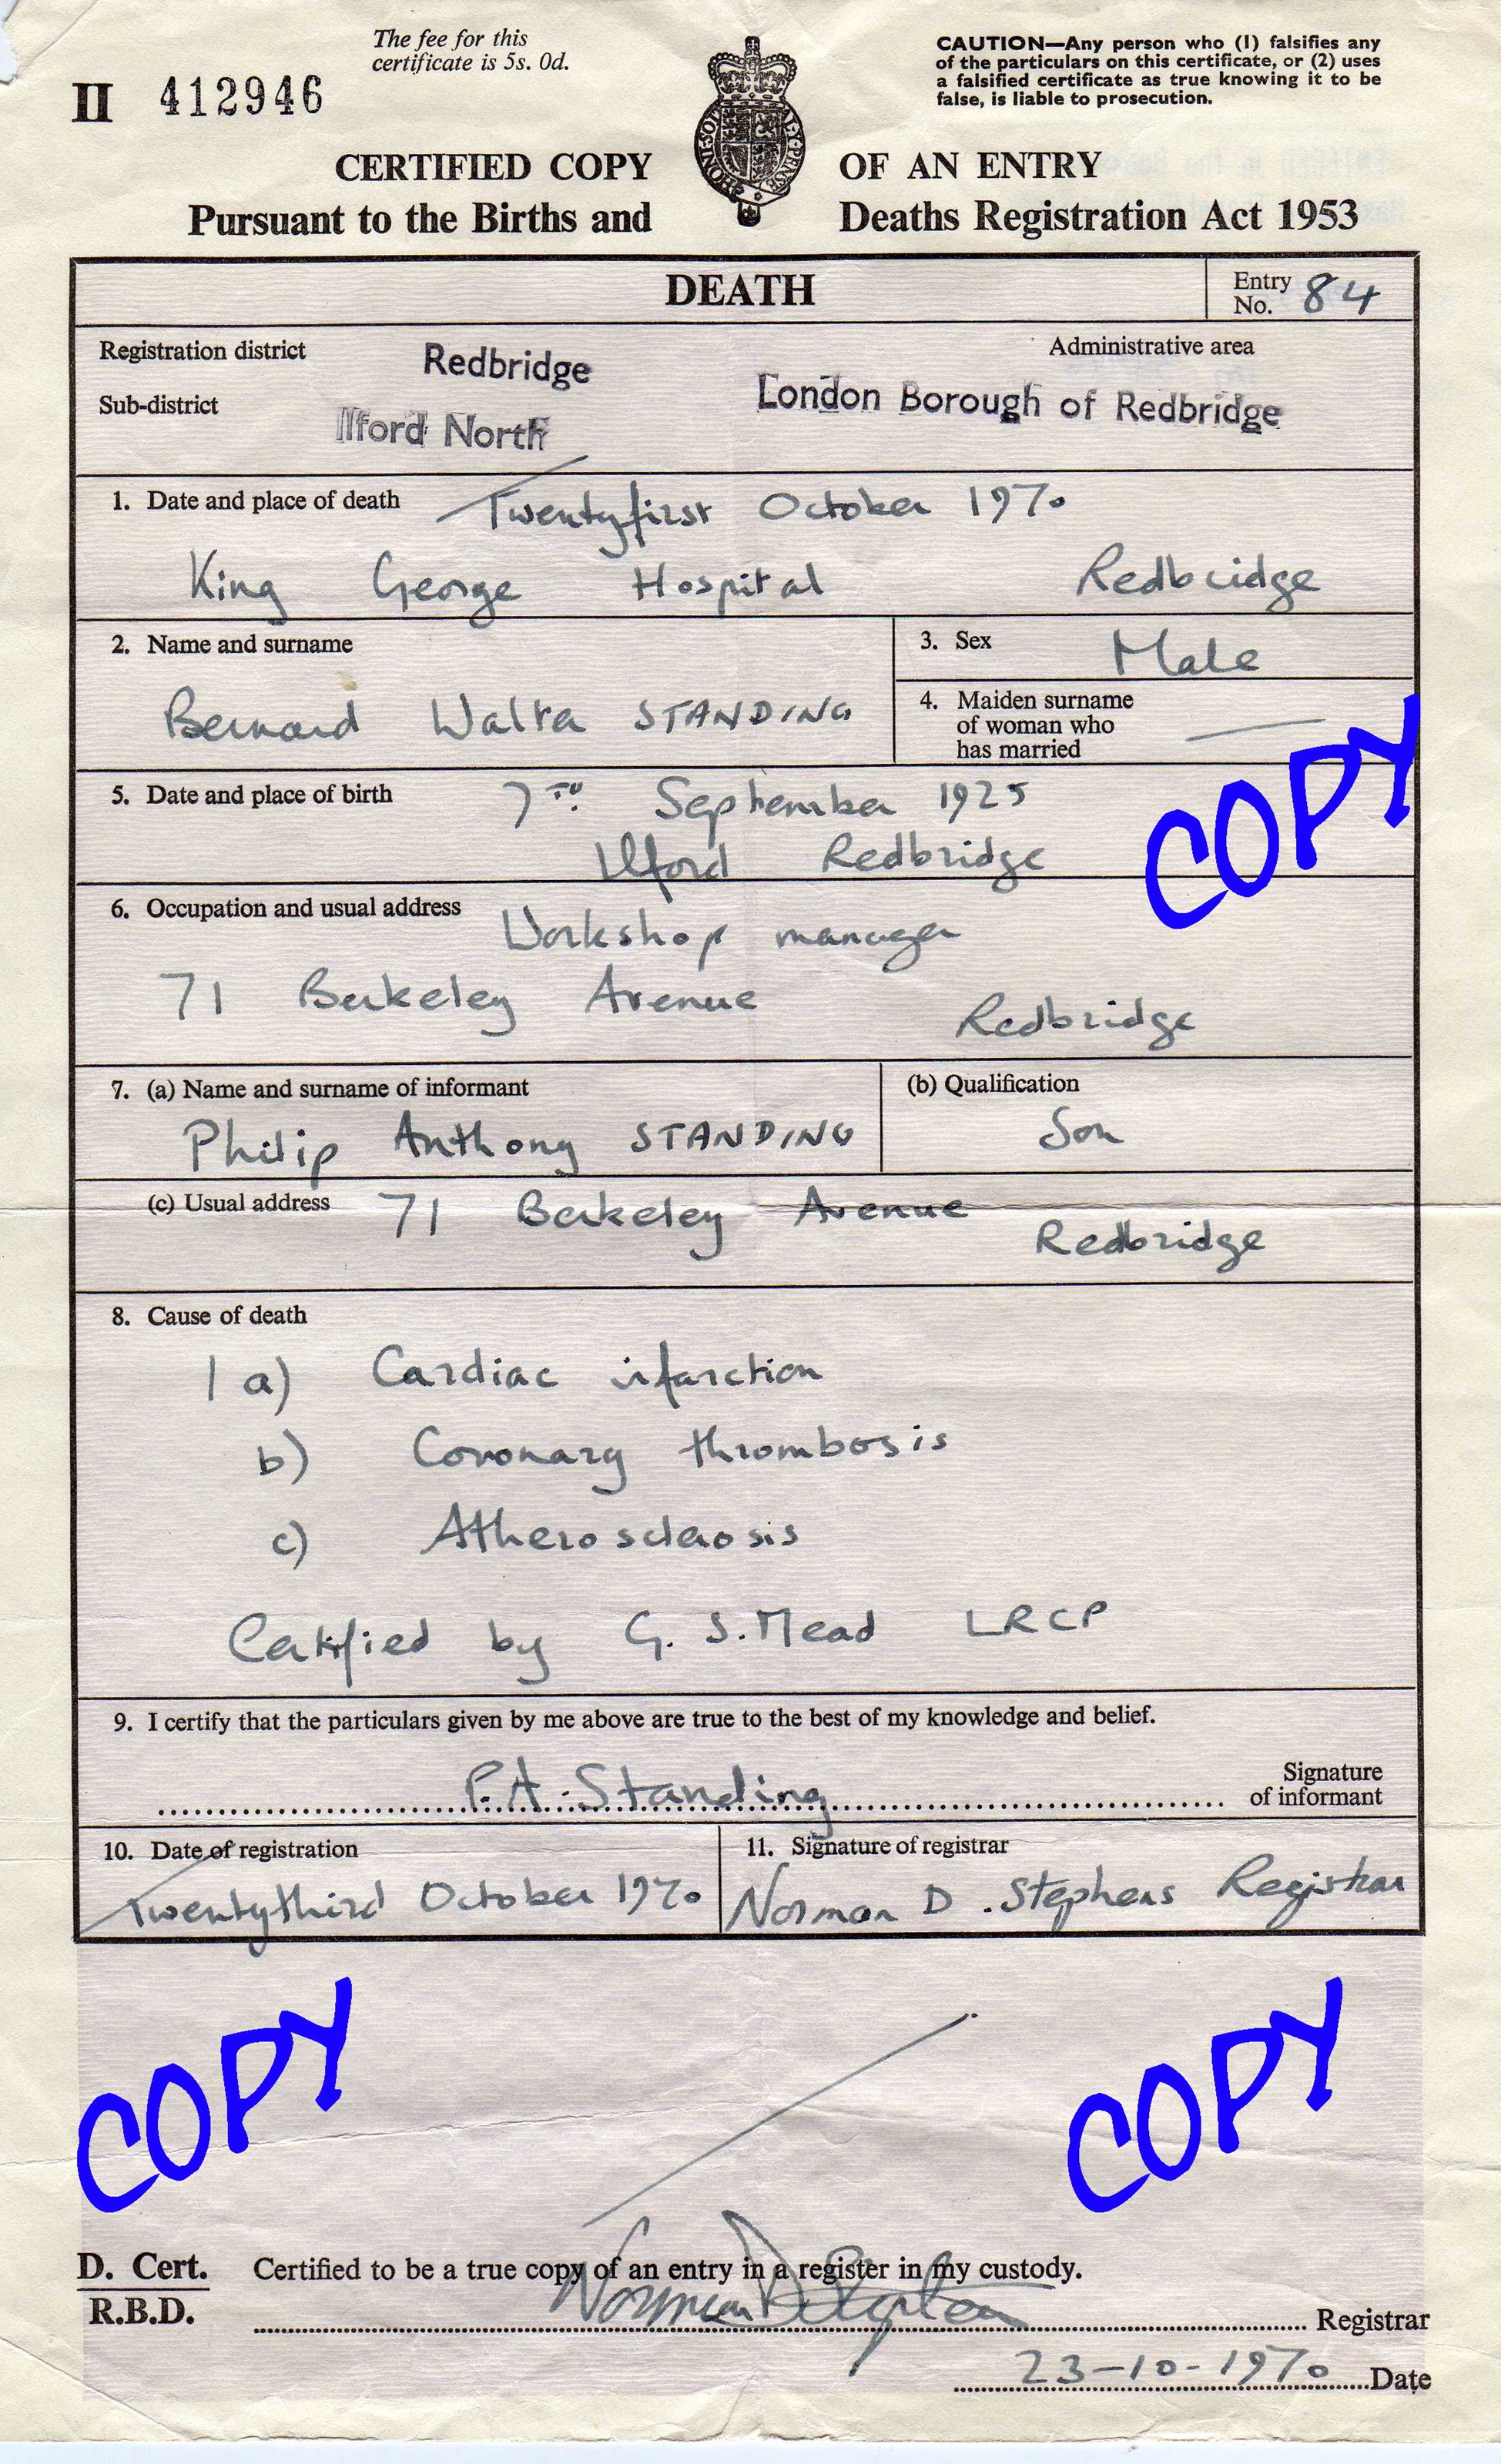 The fee for this
certificate is 5s. 0d.
CAUTION—Any person who (1) falsifies any
of the particulars on this certificate, or (2) uses
a falsified certificate as true knowing it to be
false, is liable to prosecution.
II 412946
CERTIFIED COPY OF AN ENTRY
Pursuant to the Births and Deaths Registration Act 1953
DEATH
Entry No. 84
Registration district Redbridge
Administrative area
Sub-district Ilford North
London Borough of Redbridge
1. Date and place of death Twentyfirst October 1970
King George Hospital Redbridge
2. Name and surname
Bernard Walter STANDING
3. Sex Male
4. Maiden surname
of woman who
has married
5. Date and place of birth 7TH September 1925
Ilford Redbridge
COPY
6. Occupation and usual address Workshop manager
71 Berkeley Avenue Redbridge
7. (a) Name and surname of informant
Philip Anthony STANDING
(b) Qualification
Son
(c) Usual address 71 Berkeley Avenue
Redbridge
8. Cause of death
1 a) Cardiac infarction
b) Coronary thrombosis
c) Atherosclerosis
Certified by G. S. Mead LRCP
9. I certify that the particulars given by me above are true to the best of my knowledge and belief.
P.A. Standing
Signature
of informant
10. Date of registration
Twentythird October 1970
11. Signature of registrar
Norman D. Stephens Registrar
COPY
COPY
D. Cert.
R.B.D.
Certified to be a true copy of an entry in a register in my custody.
Norman D Stephens Registrar
23-10-1970 Date